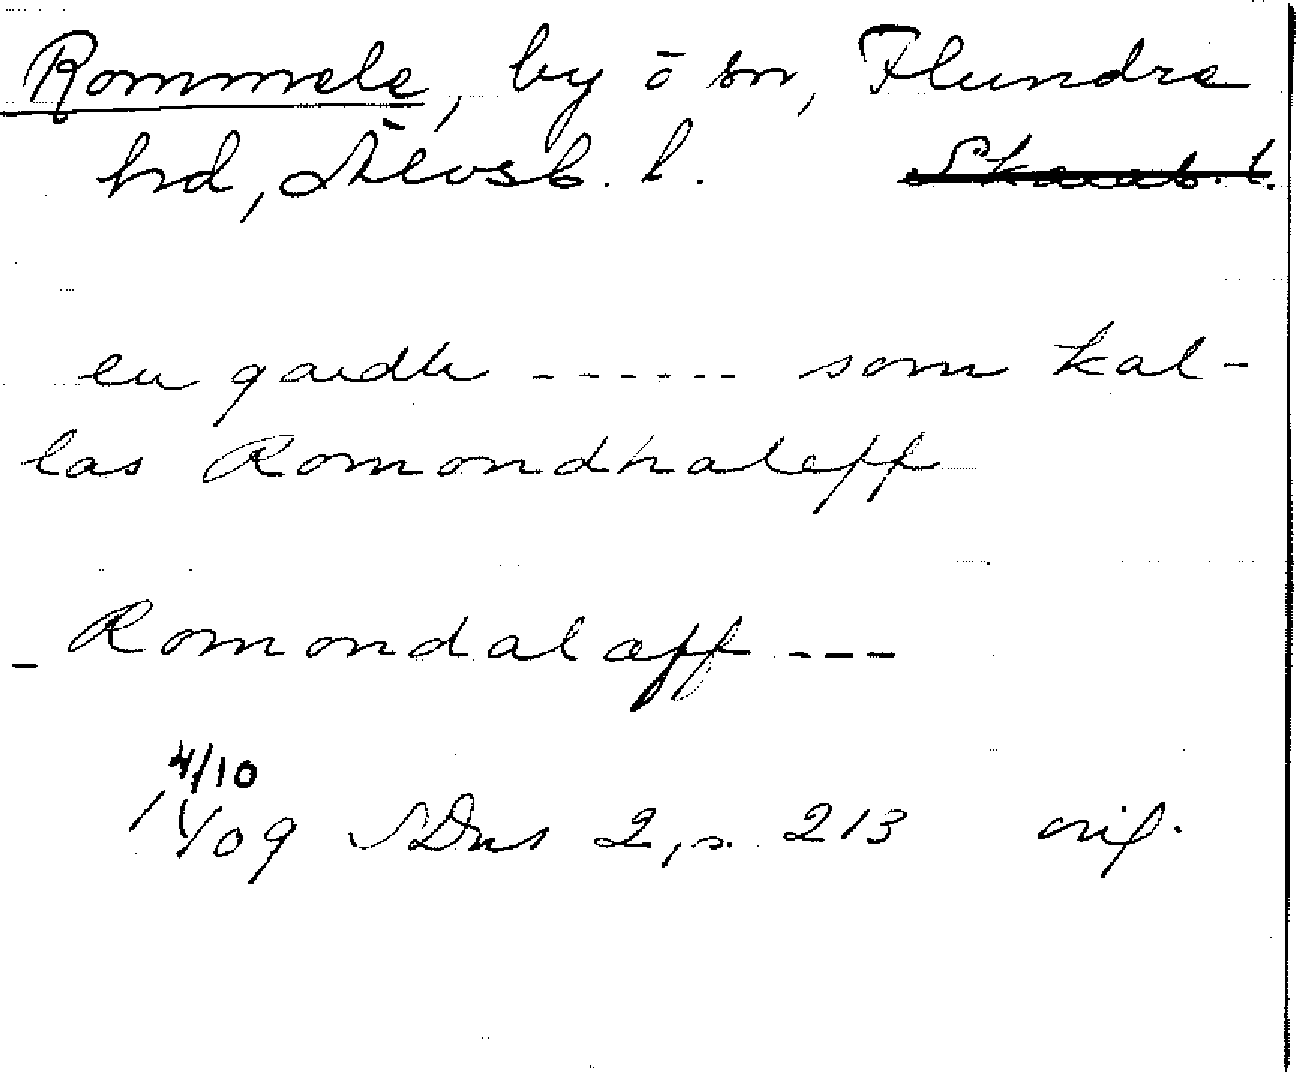 Rommele, by o sn, Flundre
hd, Älvsb. l. Skarab. l.
en gardh ------ som kal-
las Romondhaleff
- Romondalaff ---
4/10
1409 SDns 2, s. 213 orig.